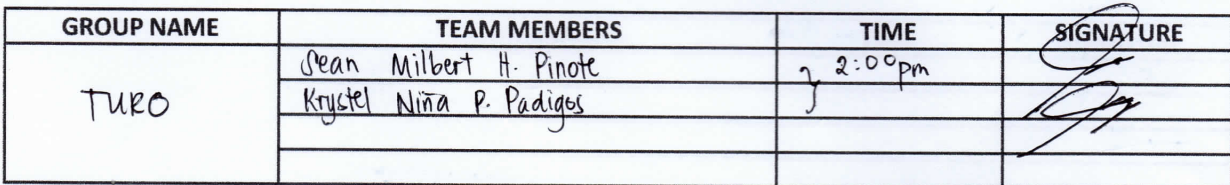 GROUP NAME TEAM MEMBERS TIME SIGNATURE
TURO
Sean Milbert H. Pinote 2:00pm
Krystel Niña P. Padigos